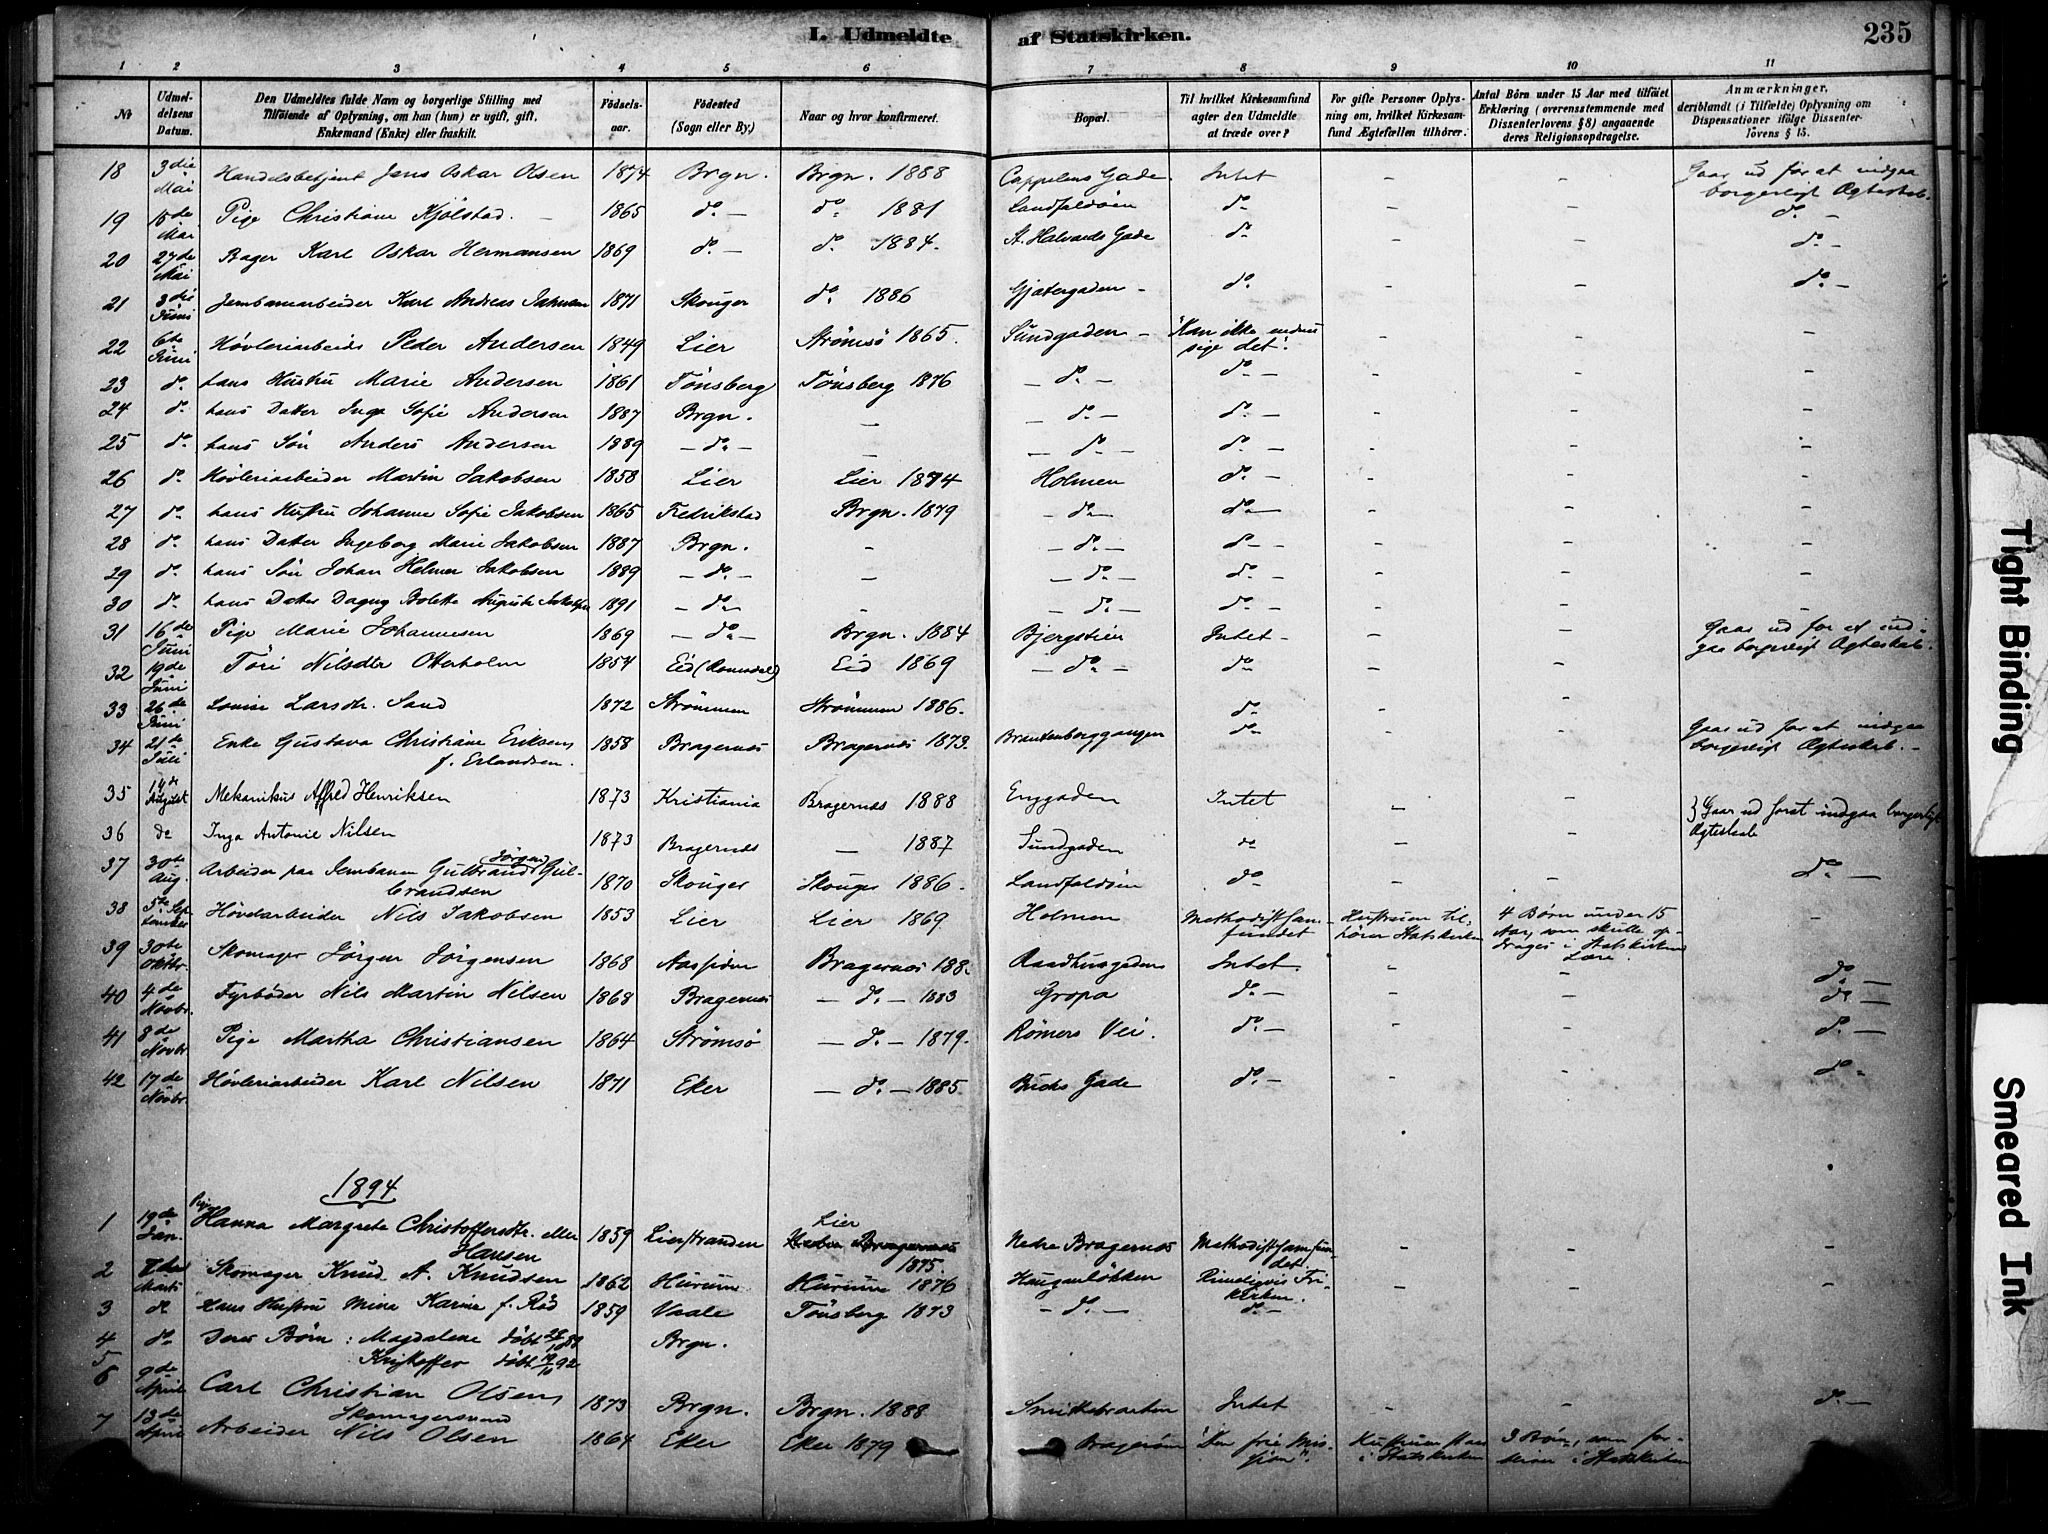 I. Udmeldte af Statskirken.
235
1 2 3 4 5 6 7 8 9 10 11
№
Udmeldelsens Datum.
Den Udmeldtes fulde Navn og borgerlige Stilling med Tilföiende af Oplysning, om han (hun) er ugift, gift, Enkemand (Enke) eller fraskilt.
Födselsaar.
Födested (Sogn eller By.)
Naar og hvor konfirmeret.
Bopæl.
Til hvilket Kirkesamfund agter den Udmeldte at træde over?
For gifte Personer Oplysning om, hvilket Kirkesamfund Ægtefællen tilhörer.
Antal Börn under 15 Aar med tilföiet Erklæring (overensstemmende med Dissenterlovens § 8) angaaende deres Religionsopdragelse.
Anmærkninger, deriblandt (i Tilfælde) Oplysning om Dispensationer ifölge Dissenterlovens § 15.
18 3die Mai Handelsbetjent Jens Oskar Olsen 1874 Brgn. Brgn. 1888 Cappelens Gade. Intet - - Gaar ud for at indgaa borgerligt Ægteskab.
19 15de Mai Pige Christiane Kjölstad. - 1865 do. - do. 1881 Landfaldöen do - - do. -
20 27de Mai Bager Karl Oskar Hermansen 1869 do. - do. 1884. St. Halvards Gade do - - do. -
21 3die Juni Jernbanearbeider Karl Andreas 1871 Skouger do. 1886 Gjetergaden - do. - - do. -
22 6te Juni Hövleriarbeider Peder Andersen 1849 Lier Strömsö 1865. Sundgaden - "Kan ikke endnu sige det". - - -
23 do. hans Hustru Marie Andersen 1861 Tönsberg Tönsberg 1876 - do. - do. - - - -
24 do. hans Datter Inga Sofie Andersen 1887 Brgn. - - do. - do. - - - -
25 do. hans Sön Anders Andersen 1889 - do. - - - do. - do. - - - -
26 do. Hövleriarbeider Martin Jakobsen 1858 Lier Lier 1874 Holmen do. - - - -
27 do. hans Hustru Johanne Sofie Jakobsen 1865 Fredrikstad Brgn. 1879 - do. - do. - - - -
28 do. hans Datter Ingeborg Marie Jakobsen 1887 Brgn. - - do. - do. - - - -
29 do. hans Sön Johan Helmer Jakobsen 1889 - do. - - - do. - do. - - - -
30 do. hans Datter Dagny Bolette Augusta 1891 - do. - - - do. - do. - - - -
31 16de Juni Pige Marie Johannesen 1869 - do. - Brgn. 1884 Bjergstien Intet - - - Gaar ud for at indgaa borgerligt Ægteskab.
32 19de Juni Töri Nilsdter Otterholm 1854 Eid (Romsdal) Eid 1869 - do. - do. - -
33 26de Juni Lovise Larsdtr. Sand 1872 Strömmen Strömmen 1886. do. - -
34 21de Juli Enke Gustava Christiane Eriksen f. Erlandsen. 1858 Bragernæs Bragernæs 1873. Brantenborggangen do. - - Gaar ud for at indgaa borgerligt Ægteskab. -
35 14de August Mekanikus Alfred Henriksen 1873 Kristiania Bragernæs 1888 Enggaden Intet - - } Gaar ud forat indgaa borgerligt Ægteskab
36 do Inga Antonie Nilsen 1873 Bragernæs - 1887 Sundgaden do - -
37 30te Aug. Arbeider paa Jernbanen Gulbrand Jörgen Gulbrandsen 1870 Skouger Skouger 1886. Landfaldöen do. - - do. -
38 5te September Hövelarbeider Nils Jakobsen 1853 Lier Lier 1869 Holmen Methodistsamfundet Hustruen tilhörer Statskirken 4 Börn under 15 Aar, som skulle opdrages i Statskirkens Lære. -
39 30te Oktbr. Skomager Jörgen Jörgensen 1868 Aassiden Bragernæs 188 Raadhusgaden Intet. - - do. -
40 4de Novbr. Fyrböder Nils Martin Nilsen 1868 Bragernæs - do. - 1883 Gropa do. - - - do. -
41 8de Novbr. Pige Martha Christiansen 1864 Strömsö - do. - 1879. Römers Vei. do. - - - do. -
42 17de Novbr. Hövleriarbeider Karl Nilsen 1871 Eker - do. - 1885 Bucks Gade do. - - - do. -
1894
1 19de Jan. Pige Hanna Margrete Christoffersdtr. eller Hansen 1859 Lierstranden Lier 1875. Nedre Bragernæs Methodistsamfundet. - - -
2 Marts Skomager Knud A. Knudsen 1862 Hurum Hurum 1876 Haugenlökken Rimeligvis Frikirken. - - -
3 do Hans Hustru Mina Karine f. Röd 1859 Vaale Tönsberg 1873 - do. - do. -
4 do. Deres Börn: Magdalene döbt 88 Brgn.
5 Kristoffer döbt 92
6 9de April Carl Christian Olsen, Skomagersvend 1873 Brgn. Brgn. 1888 Smithebakken Intet - - do. -
7 13de April Arbeider Nils Olsen 1864 Eker Eker 1879 Bragerøen "Den frie Mission". Hustruen staar i Statskirken 3 Börn, som forbliver i Statskirken
Tight Binding
Smeared Ink